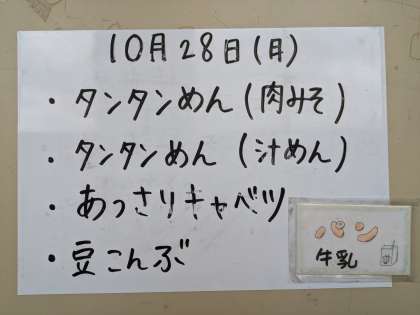 10月28日(月)
・タンタンめん(肉みそ)
・タンタンめん(汁めん)
・あっさりキャベツ
・豆こんぶ
パン
牛乳